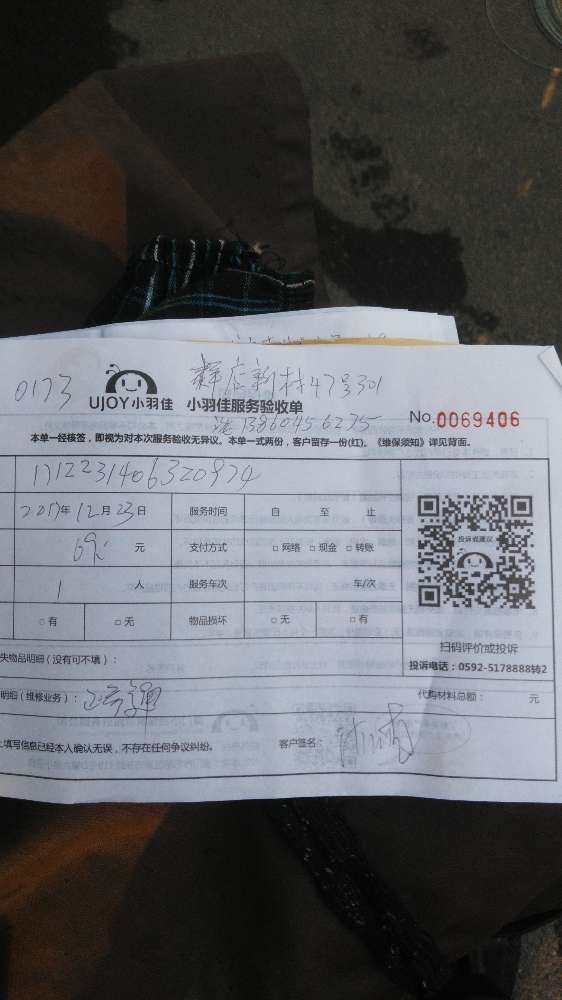 0173
新村47号301
UJOY小羽佳 小羽佳服务验收单
No.0069406
本单一经核签，即视为对本次服务验收无异议。本单一式两份，客户留存一份(红)。《维保须知》详见背面。
2017年12月23日 服务时间 自 至 止
元 支付方式 □网络 □现金 □转账
投诉或建议
1人 服务车次 车/次
□有 □无 物品损坏 □无 □有
扫码评价或投诉
失物品明细（没有可不填）：
投诉电话：0592-5178888转2
明细（维修业务）：
代购材料总额： 元
填写信息已经本人确认无误，不存在任何争议纠纷。 客户签名：